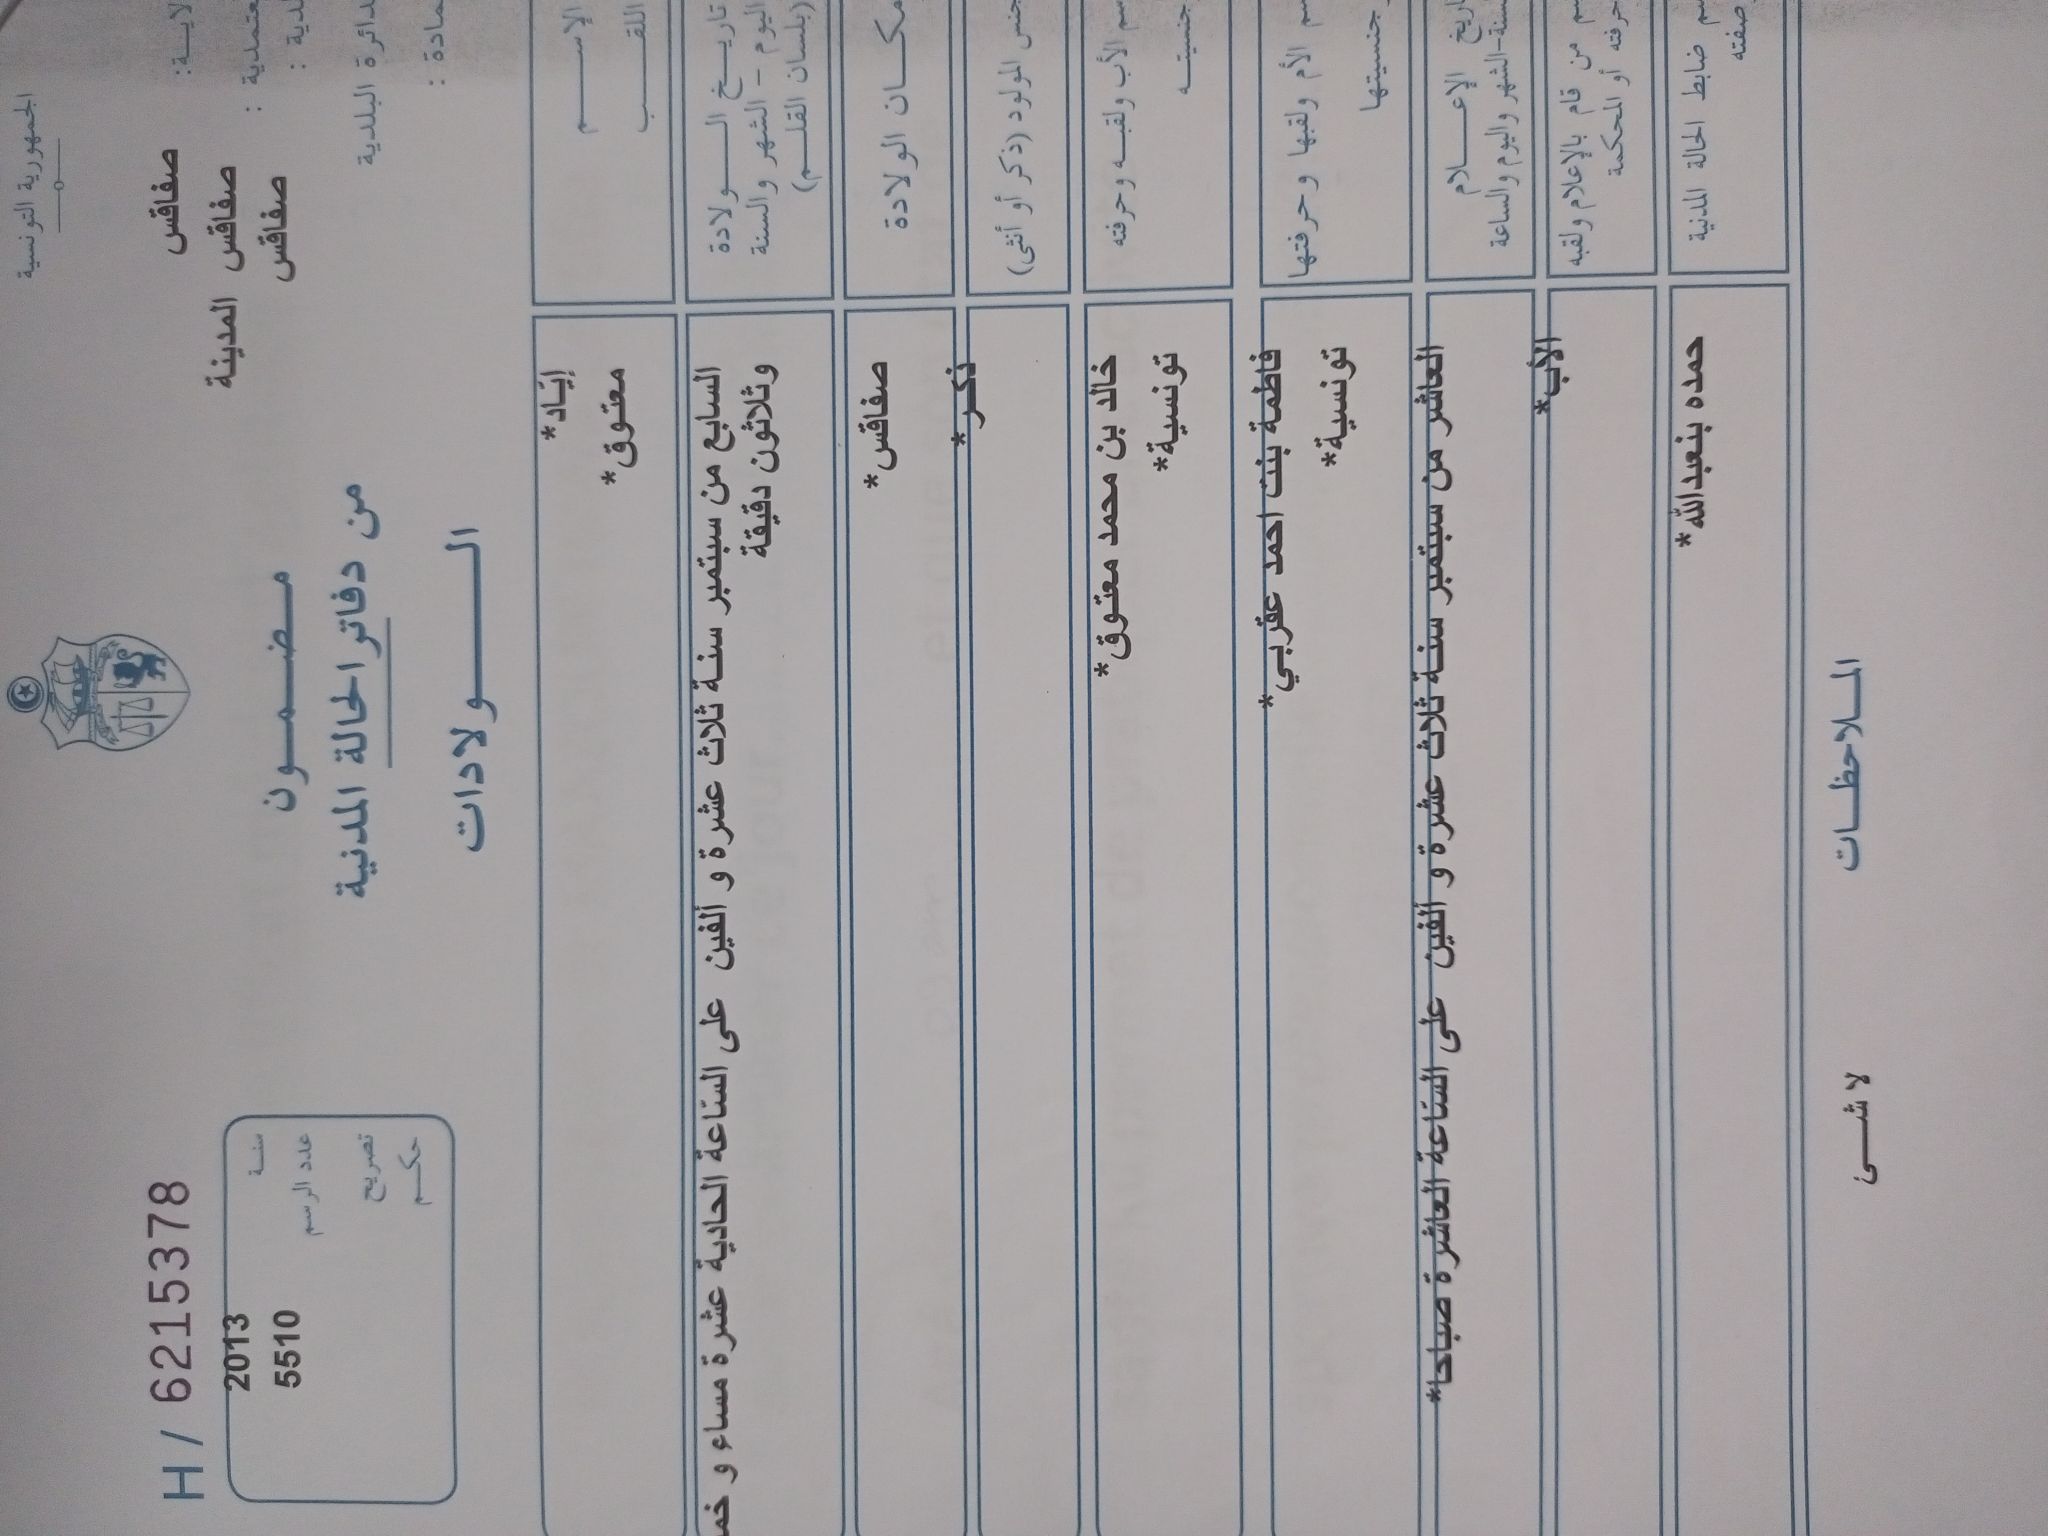 الجمهورية التونسية
H / 6215378
صفاقس
صفاقس المدينة
صفاقس
دائرة البلدية
مضمون
من دفاتر الحالة المدنية
الولادات
سنة 2013
عدد الرسم 5510
تصريح
حكم
الإسم
اللقب
إيّاد*
معتوق*
تاريخ الولادة
اليوم - الشهر والسنة
(بلسان القلم)
السابع من سبتمبر سنة ثلاث عشرة و ألفين على السّاعة الحادية عشرة مساء و
وثلاثون دقيقة
مكان الولادة
صفاقس*
جنس المولود (ذكر أو أنثى)
ذكر*
الأب ولقبه وحرفته
خالد بن محمد معتوق*
تونسية*
الأم ولقبها وحرفتها
جنسيتها
فاطمة بنت احمد عقربي*
تونسية*
الإعلام
والشهر واليوم والساعة
العاشر من سبتمبر سنة ثلاث عشرة و ألفين على السّاعة العاشرة صباحا*
من قام بالإعلام ولقبه
حرفته أو المحكمة
الأب*
ضابط الحالة المدنية
صفته
حمده بنعبدالله*
الملاحظات
لا شئ